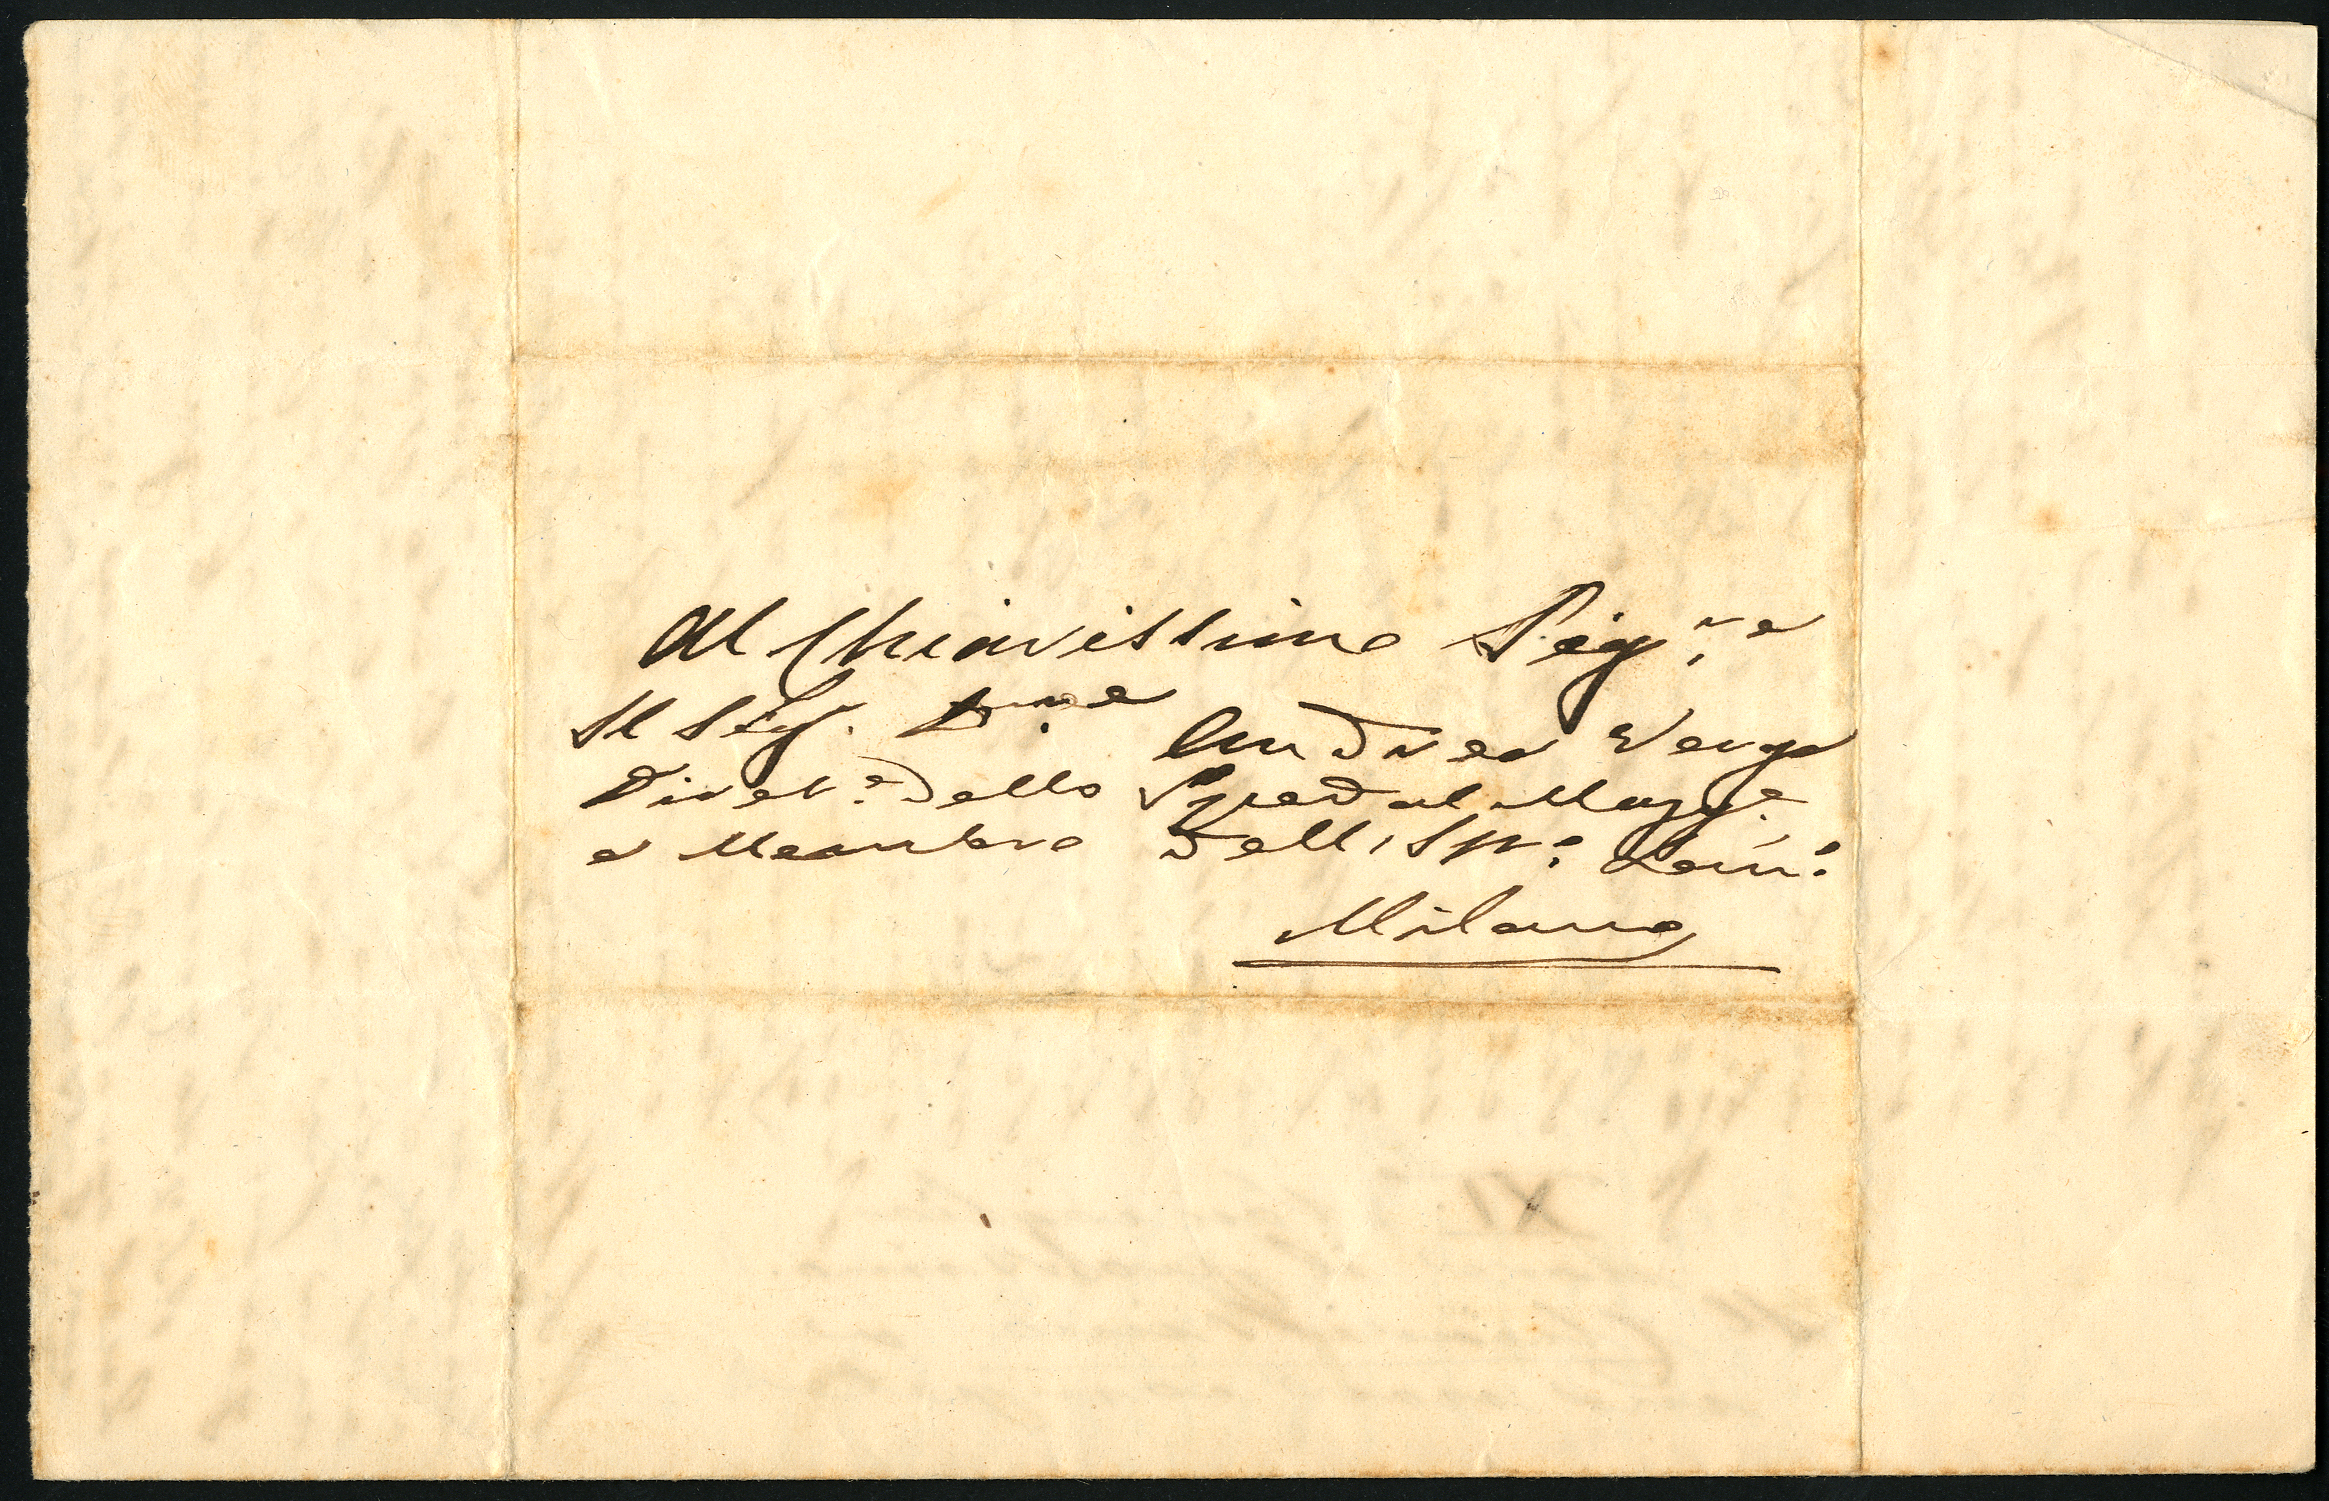 Al Chiarissimo Sig.re
Il Sig. D.re Andrea Verga
Diret.e dello Spedal Magg.e
e Membro dell'Ist.o Lom.o
Milano